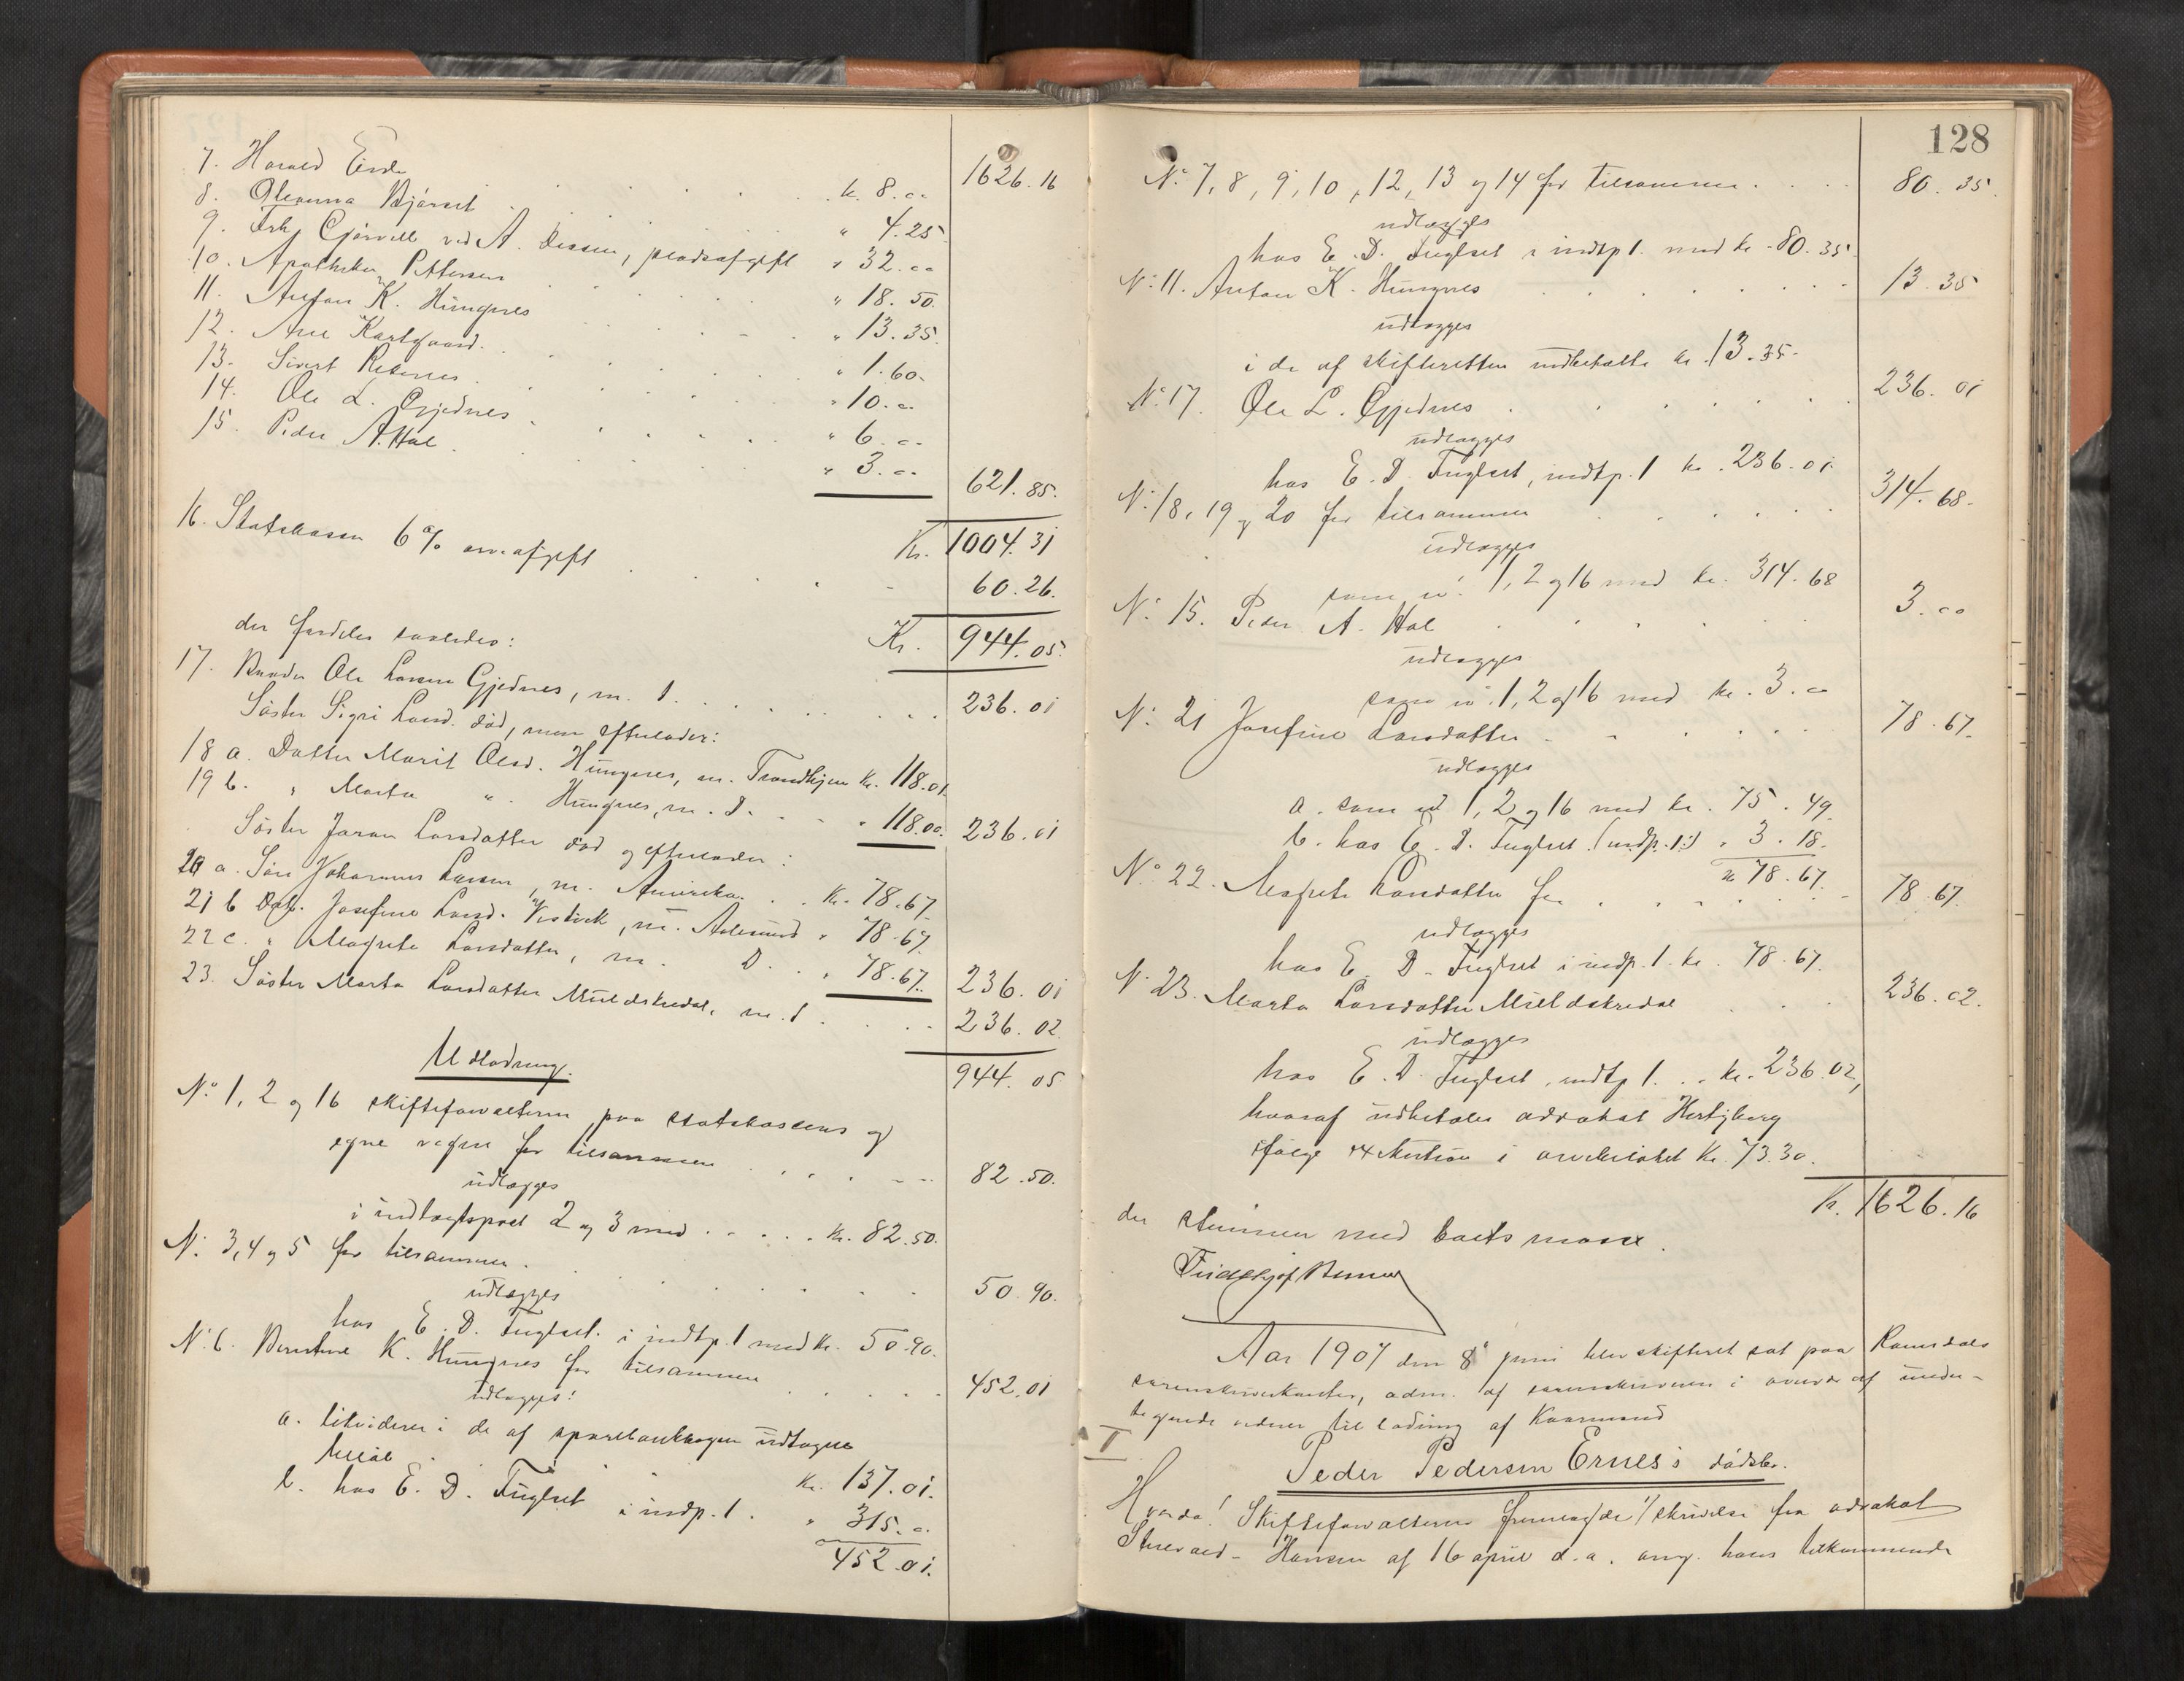 1626.16
7. Harald Eide . . . kr. 8.00
8. Oleanna Bjørset . . . " 4.25
9. Frk. Gjørvell ved A. Dessen, pladsafgift " 32.00
10. Apotheker Pettersen . . . " 18.50.
11. Anton K. Hungnes . . . " 13.35
12. Ane Karlsgaard . . . " 1.60.
13. Sivert Reknes . . . " 10.00
14. Ole L. Gjednes . . . " 6.00
15. Peder A. Hol . . . " 3.00 621.85.
Kr. 1004.31
16. Statskassen 6 % arveafgift . . . 60.26.
Kr. 944.05.
der fordeles saaledes:
17. Broder Ole Larsen Gjednes, m. . . . 236.01
Søster Sigri Larsd. død, men efterlader:
18 a. Datter Marit Olsd. Hungnes, m. Trondhjem kr. 118.01.
19 b. " Marta " Hungnes, m. . . . " 118.00. 236.01
Søster Joran Larsdatter død og efterlader:
20 a. Søn Johannes Larsen, m. Amerika . . Kr. 78.67.
21 b Datt. Josefine Larsd. Vestvik, m. Aalesund " 78.67.
22 c. " Magrete Larsdatter, m. D. . . " 78.67. 236.01
23. Søster Marta Larsdatter Muldskredal, m. . . . 236.02
944.05
Udlodning.
No 1, 2 og 16 skifteforvalteren paa statskassens og
egne vegne for tilsammen . . . 82.50.
udlægges
i indtægtspost 2 og 3 med . . . kr. 82.50.
No. 3, 4 og 5 for tilsammen . . . 50.90.
udlægges
hos E. D. Fuglset i indtp. 1 med kr. 50.90.
No. 6. K. Hungnes for tilsammen . . . 452.01
udlægges:
a. likviderer i de af sparebankbogen udtagne
beløb . . . kr. 137.01.
b. hos E. D. Fuglset i indp. 1. " 315.00
452.01.
128
No. 7, 8, 9, 10, 12, 13 og 14 for tilsammen . . . 80.35.
udlægges
hos E. D. Fuglset i indtp 1. med kr. 80.35.
No. 11. Anton K. Hungnes . . . 13.35
udlægges
i de af skifteretten indbetalte kr. 13.35.
No. 17. Ole L. Gjednes . . . 236.01
udlægges
hos E. D. Fuglset, indtp. 1 kr. 236.01.
No. 18, 19 og 20 for tilsammen . . . 314.68.
udlægges
som no. 1, 2 og 16 med kr. 314.68
No. 15. Peder A. Hol . . . 3.00
udlægges
som no. 1, 2 og 16 med kr. 3.00
No. 21 Josefine Larsdatter . . . 78.67.
udlægges
a. som no 1, 2 og 16 med kr. 75.49.
b. hos E. D. Fuglset (indp. 1:) " 3.18.
kr. 78.67.
No. 22. Magrete Larsdatter for . . . 78.67.
udlægges
hos E. D. Fuglset i indp. 1. kr. 78.67.
No. 23. Marta Larsdatter Muldskredal . . . 236.02.
udlægges
hos E. D. Fuglset, indtp 1. . . kr. 236.02,
hvoraf udbetales advokat Hertzberg
ifølge exekution i arvebeløbet Kr. 73.30.
Kr. 1626.16
der stemmer med boets masse.
Aar 1907 den 8de juni blev skifteret sat paa Romsdals
sorenskriverkontor, adm. af sorenskriveren i overvær af under-
tegnede vidner til lodning af Kaarmand
Peder Pedersen Ernes's dødsbo.
Hvorda! Skifteforvalteren fremlagde 1/ skrivelse fra advokat
Hansen af 16 april d. a. ang. hans tilkommende